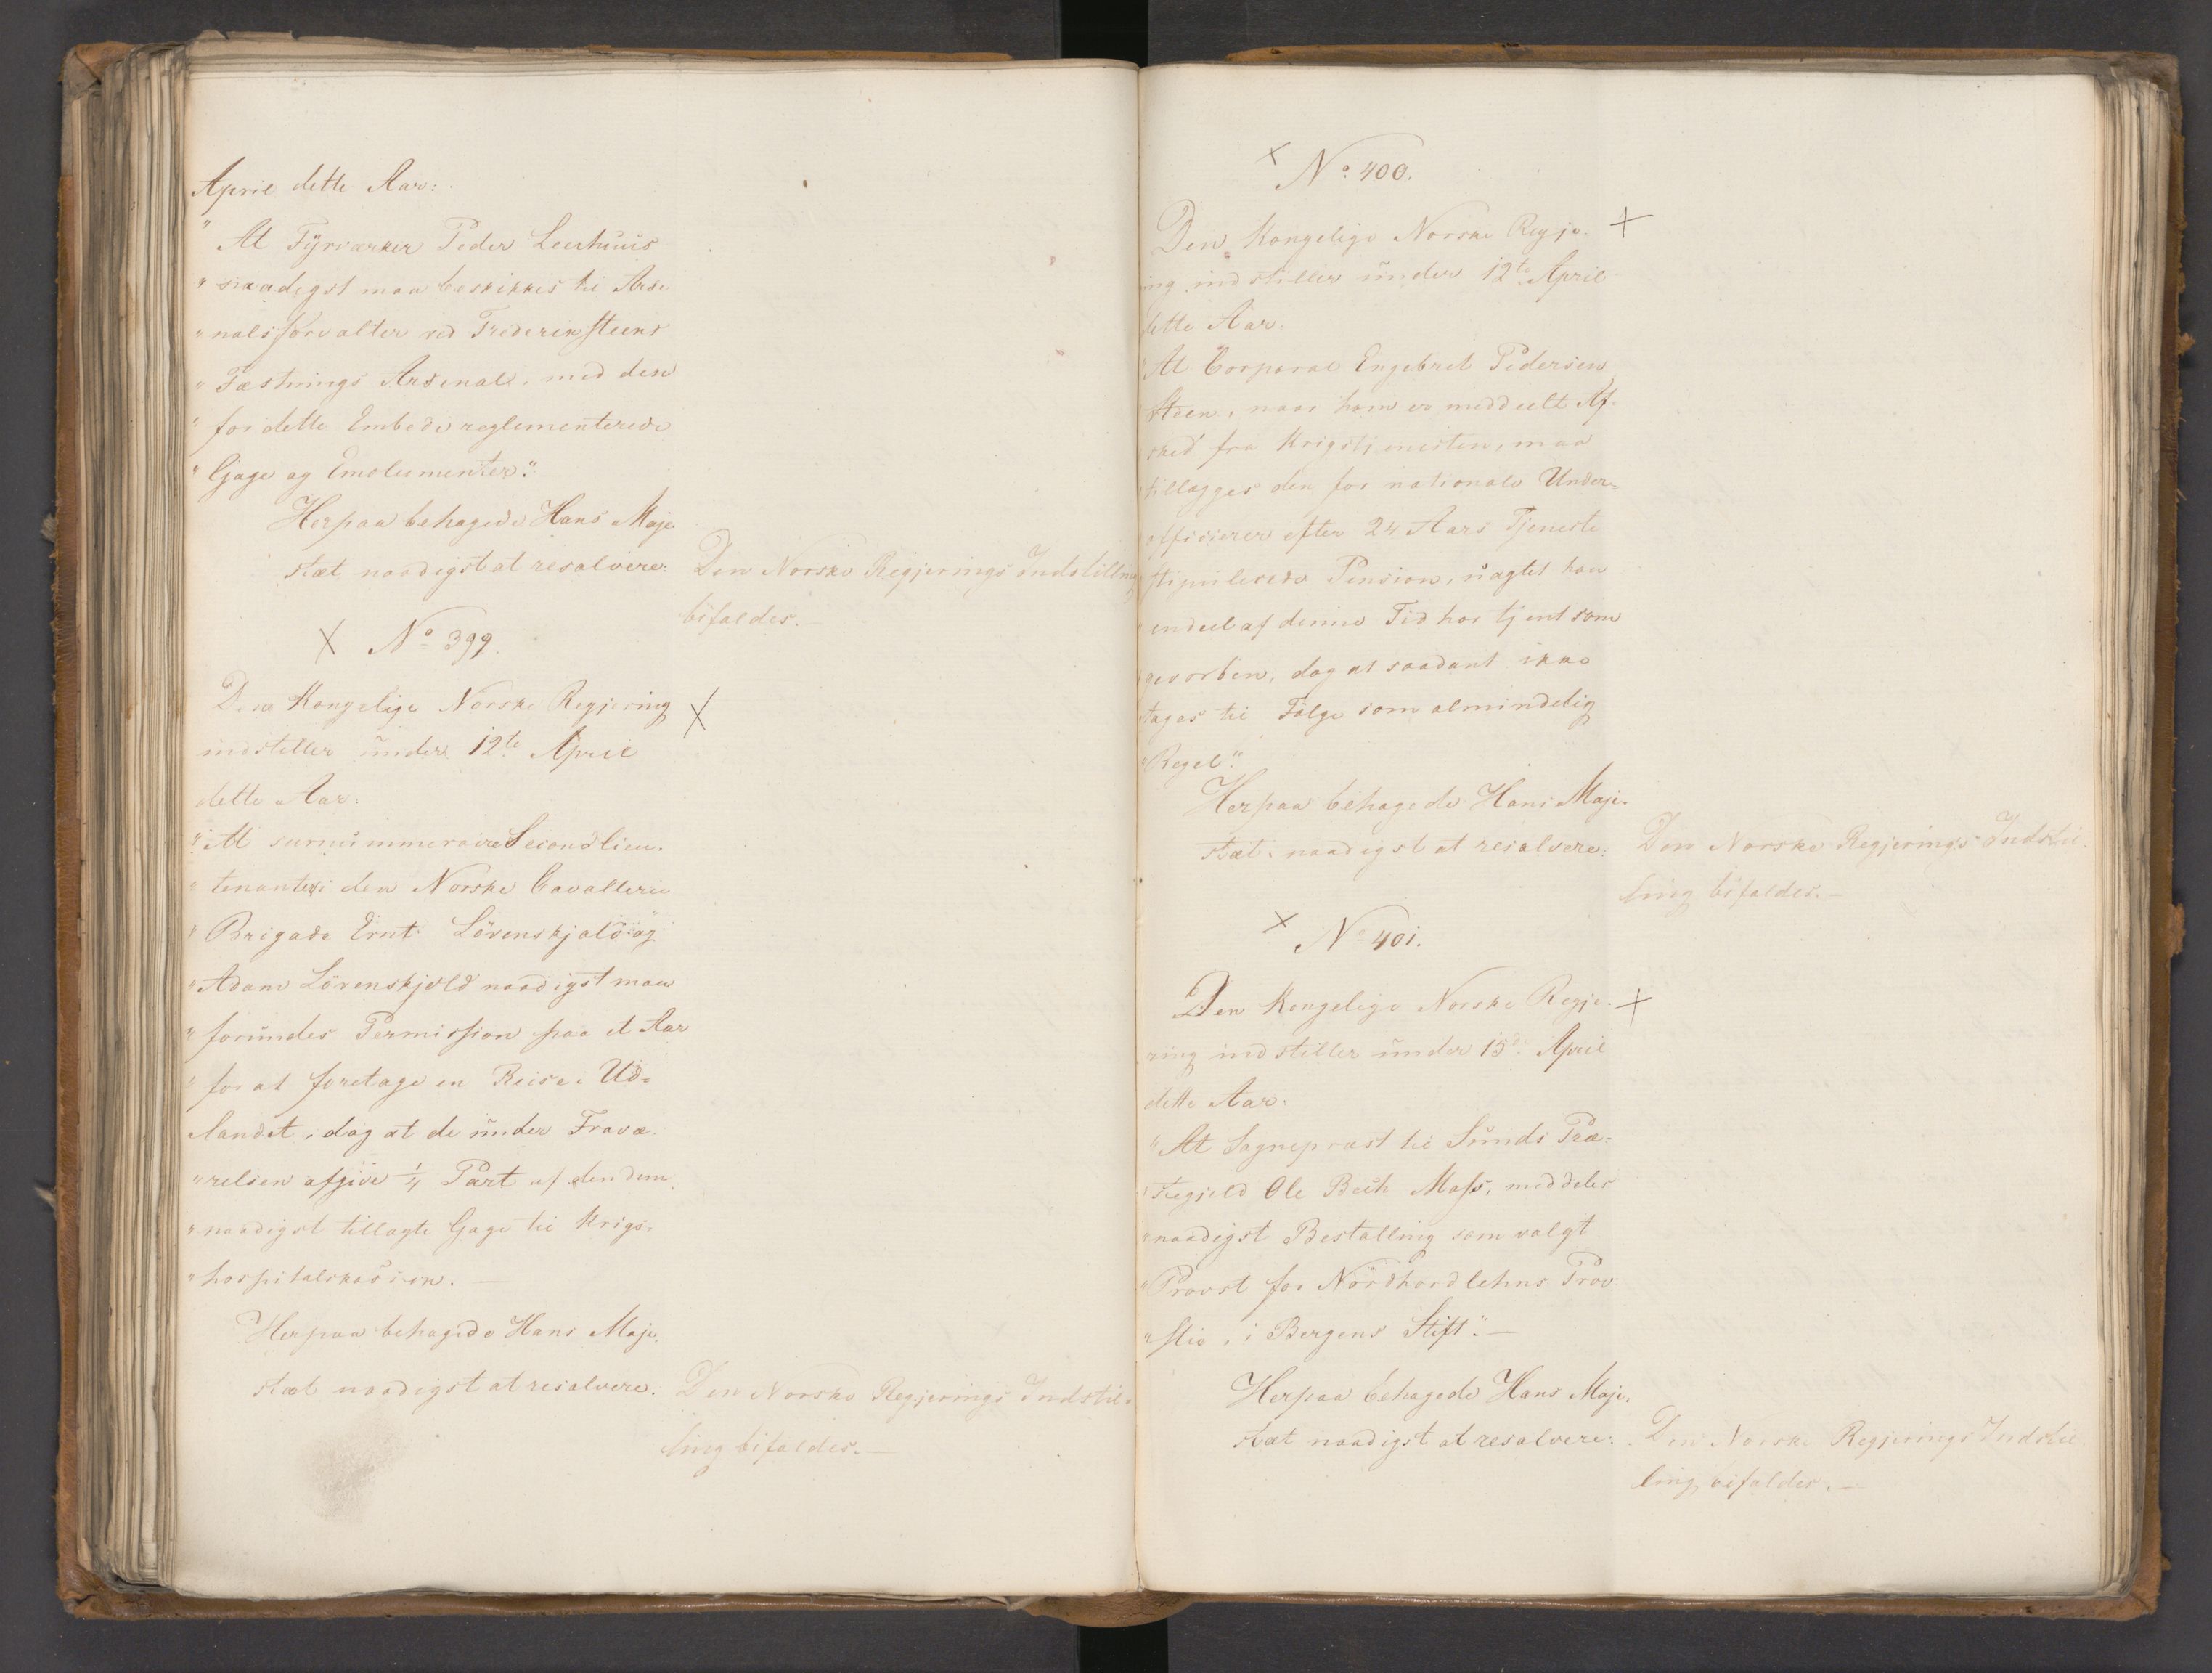 April dette Aar:
" At Fyrværker Peder Leuhuus
" naadigst maa beskikkes til Arse
" nalsforvalter ved Fredericksteens
" Fæstnings Arsenal, med den
" for dette Embede reglementerede
" Gage og Emolumenter."
Herpaa behagede Hans Maje
stæt naadigst at resolvere:
Den Norske Regjerings Indstilling
bifaldes.—
X No 399.
Den Kongelige Norske Regjering X
indstiller under 12te April
dette Aar:
" At surnummeraire Secondlieu-
" tenanter i den Norske Cavallerie
" Brigade Ernt Lövenskjold og
" Adam Lövenskjold naadigst maa
" forundes Permission paa et Aar
" for at foretage en Reise i Ud-
landet, dog at de under Fravæ-
" relsen afgive 1/4 Part af den dem
" naadigst tillagte Gage til Krigs-
" hospitalskassen.—
Herpaa behagede Hans Maje-
stæt naadigst at resolvere.
Den Norske Regjerings Indstil-
ling bifaldes.—
X No 400.
Den Kongelige Norske Regje- X
ring indstiller under 12te April
dette Aar:
At Corporal Engebret Pedersen
Steen, naar ham er meddeelt Af-
sked fra Krigstjenesten, maa
tillægges den for nationale Under-
officierer efter 24 Aars Tjeneste
stipulerede Pension, uagtet han
endeel af denne Tid har tjent som
gevorben, dog at saadant ikke
tages til Følge som almindelig
Regel."
Herpaa behagede Hans Maje-
stæt naadigst at resolvere:
Den Norske Regjerings Indstil-
ling bifaldes.—
X No 401.
Den Kongelige Norske Regje- X
ring indstiller under 15de April
dette Aar:
" At Sogneprest til Sunds Præ-
" stegjeld Ole Beck Moss, meddeles
" naadigst Bestalling som valgt
" Provst for Nordhordlehns Prov
" stie, i Bergens Stift."—
Herpaa behagede Hans Maje-
stæt naadigst at resolvere:
Den Norske Regjerings Indstil-
ling bifaldes.—